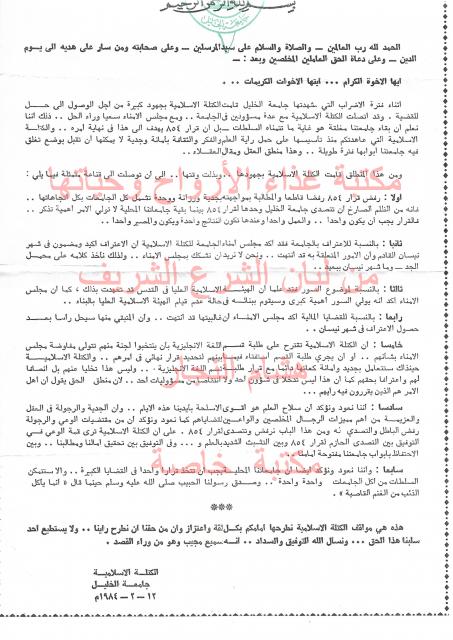 بسم الله الرحمن الرحيم
الحمد لله رب العالمين — والصلاة والسلام على سيد المرسلين — وعلى صحابته ومن سار على هديه الى يوم
الدين — وعلى دعاة الحق العاملين المخلصين وبعد : —
ايها الاخوة الكرام ... ايتها الاخوات الكريمات ...
اثناء فترة الاضراب التي شهدتها جامعة الخليل قامت الكتلة الاسلامية بجهود كبيرة من اجل الوصول الى حل
للقضية . وقد اتصلت الكتلة الاسلامية مع عدة مسؤولين في الجامعة .. ومع مجلس الامناء سعيا وراء الحل .. ذلك اننا
نعلم ان بقاء جامعتنا مغلقة هو غاية ما تتمناه السلطات .. بل ان قرار ٨٥٤ يهدف الى هذا في نهاية امره .. والكتلة
الاسلامية التي عاهدتكم منذ تأسيسها على حمل راية العلم والفكر والثقافة بامانة وجدية لا يمكنها ان تقبل بوضع تغلق
فيه جامعتنا ابوابها فترة طويلة .. وهذا منطق العقل ومقال العقلاء ..
ومن هذا المنطلق قامت الكتلة الاسلامية بجهودها .. الى ان توصلت الى قناعة متمثلة فيما يلي :
اولا : رفض قرار ٨٥٤ رفضا قاطعا والمطالبة بمواجهته بجدية ورزانة ووحدة تشمل كل الجامعات بكل اتجاهاتها .
فانه من الظلم الصارخ ان تتصدى جامعة الخليل وحدها لقرار ٨٥٤ بينما بقية جامعاتنا المحلية لا تولي الامر اهمية تذكر ..
فالقرار يجب ان يكون واحدا .. والعمل واحدا وعندها تكون النتائج واحدة ويكون والمصير واحدا ..
ثانيا : بالنسبة للاعتراف بالجامعة فقد اكد مجلس امناء الجامعة للكتلة الاسلامية ان الاعتراف اكيد ومضمون في شهر
نيسان القادم وان الامور المتعلقة به قد انتهت .. ونحن لا نريد ان نشكك بمجلس الامناء .. ولذلك نأخذ كلامه على محمل
الجد .. وما شهر نيسان ببعيد ..
ثالثا : بالنسبة لموضوع السور فقد علمنا ان الهيئة الاسلامية العليا في القدس قد تعهدت بذلك ، كما ان مجلس
الامناء اكد انه يولي السور اهمية كبرى وسيقوم ببنائه في حالة عدم قيام الهيئة الاسلامية العليا بالبناء ..
رابعا : بالنسبة للقضايا المالية اكد مجلس الامناء ان غالبيتها قد انتهت .. وان المتبقي منها سيحل راسا بعد
حصول الاعتراف في شهر نيسان .
خامسا : ان الكتلة الاسلامية تقترح على طلبة قسم اللغة الانجليزية بان ينتخبوا لجنة منهم تتولى مفاوضة مجلس
الامناء بشأنهم .. او ان يجري طلبة القسم استفتاء فيما بينهم لتحديد قرار نهائي في امرهم .. والكتلة الاسلامية
حينذاك ستتعامل بجدية وامانة كعادتها دائما مع قرار طلبة قسم اللغة الانجليزية .. وليس هذا تخليا عنهم بل انصافا
لهم واعترافا بحقهم كما ان هذا ليس تدخلا في شؤون احد ولا انتقاصا من مسؤوليات احد .. لان منطق الحق يقول ان اهل
الامر هم الذين يقررون فيه رايهم ..
سادسا : اننا نعود ونؤكد ان سلاح العلم هو اقوى الاسلحة بايدينا هذه الايام .. وان الجدية والرجولة في العقل
والعزيمة من اهم مميزات الرجال المخلصين والواعين للقضاياهم كما نعود ونؤكد ان من مقتضيات الوعي والرجولة
رفض الباطل والتصدي له ومن هذا الباب نرفض ونتصدى لقرار ٨٥٤ . على ان الكتلة الاسلامية ترى قمة الوعي في
التوفيق بين التصدي الحازم لقرار ٨٥٤ وبين التشبث الشديد بالعلم .. وفي التوفيق بين تحقيق امالنا ومطالبنا .. وبين
الاحتفاظ بابواب جامعتنا مفتوحة امامنا ..
سابعا : واننا نعود ونؤكد ايضا ان جامعاتنا المحلية يجب ان تتخذ قرارا واحدا في القضايا الكبيرة .. والا ستتمكن
السلطات من اكل الجامعات واحدة واحدة .. وصدق رسولنا الحبيب صلى الله عليه وسلم حينما قال « انما ياكل
الذئب من الغنم القاصية » .
***
هذه هي مواقف الكتلة الاسلامية نطرحها امامكم بكل ثقة واعتزاز وان من حقنا ان نطرح راينا .. ولا يستطيع احد
سلبنا هذا الحق .. ونسال الله التوفيق والسداد .. انه سميع مجيب وهو من وراء القصد .
الكتلة الاسلامية
جامعة الخليل
١٢ – ٢ – ١٩٨٤م
مكتبة غذاء الأرواح وحياتها
من لبان الشرع الشريف
هشام النجار
مكتبة خاصة